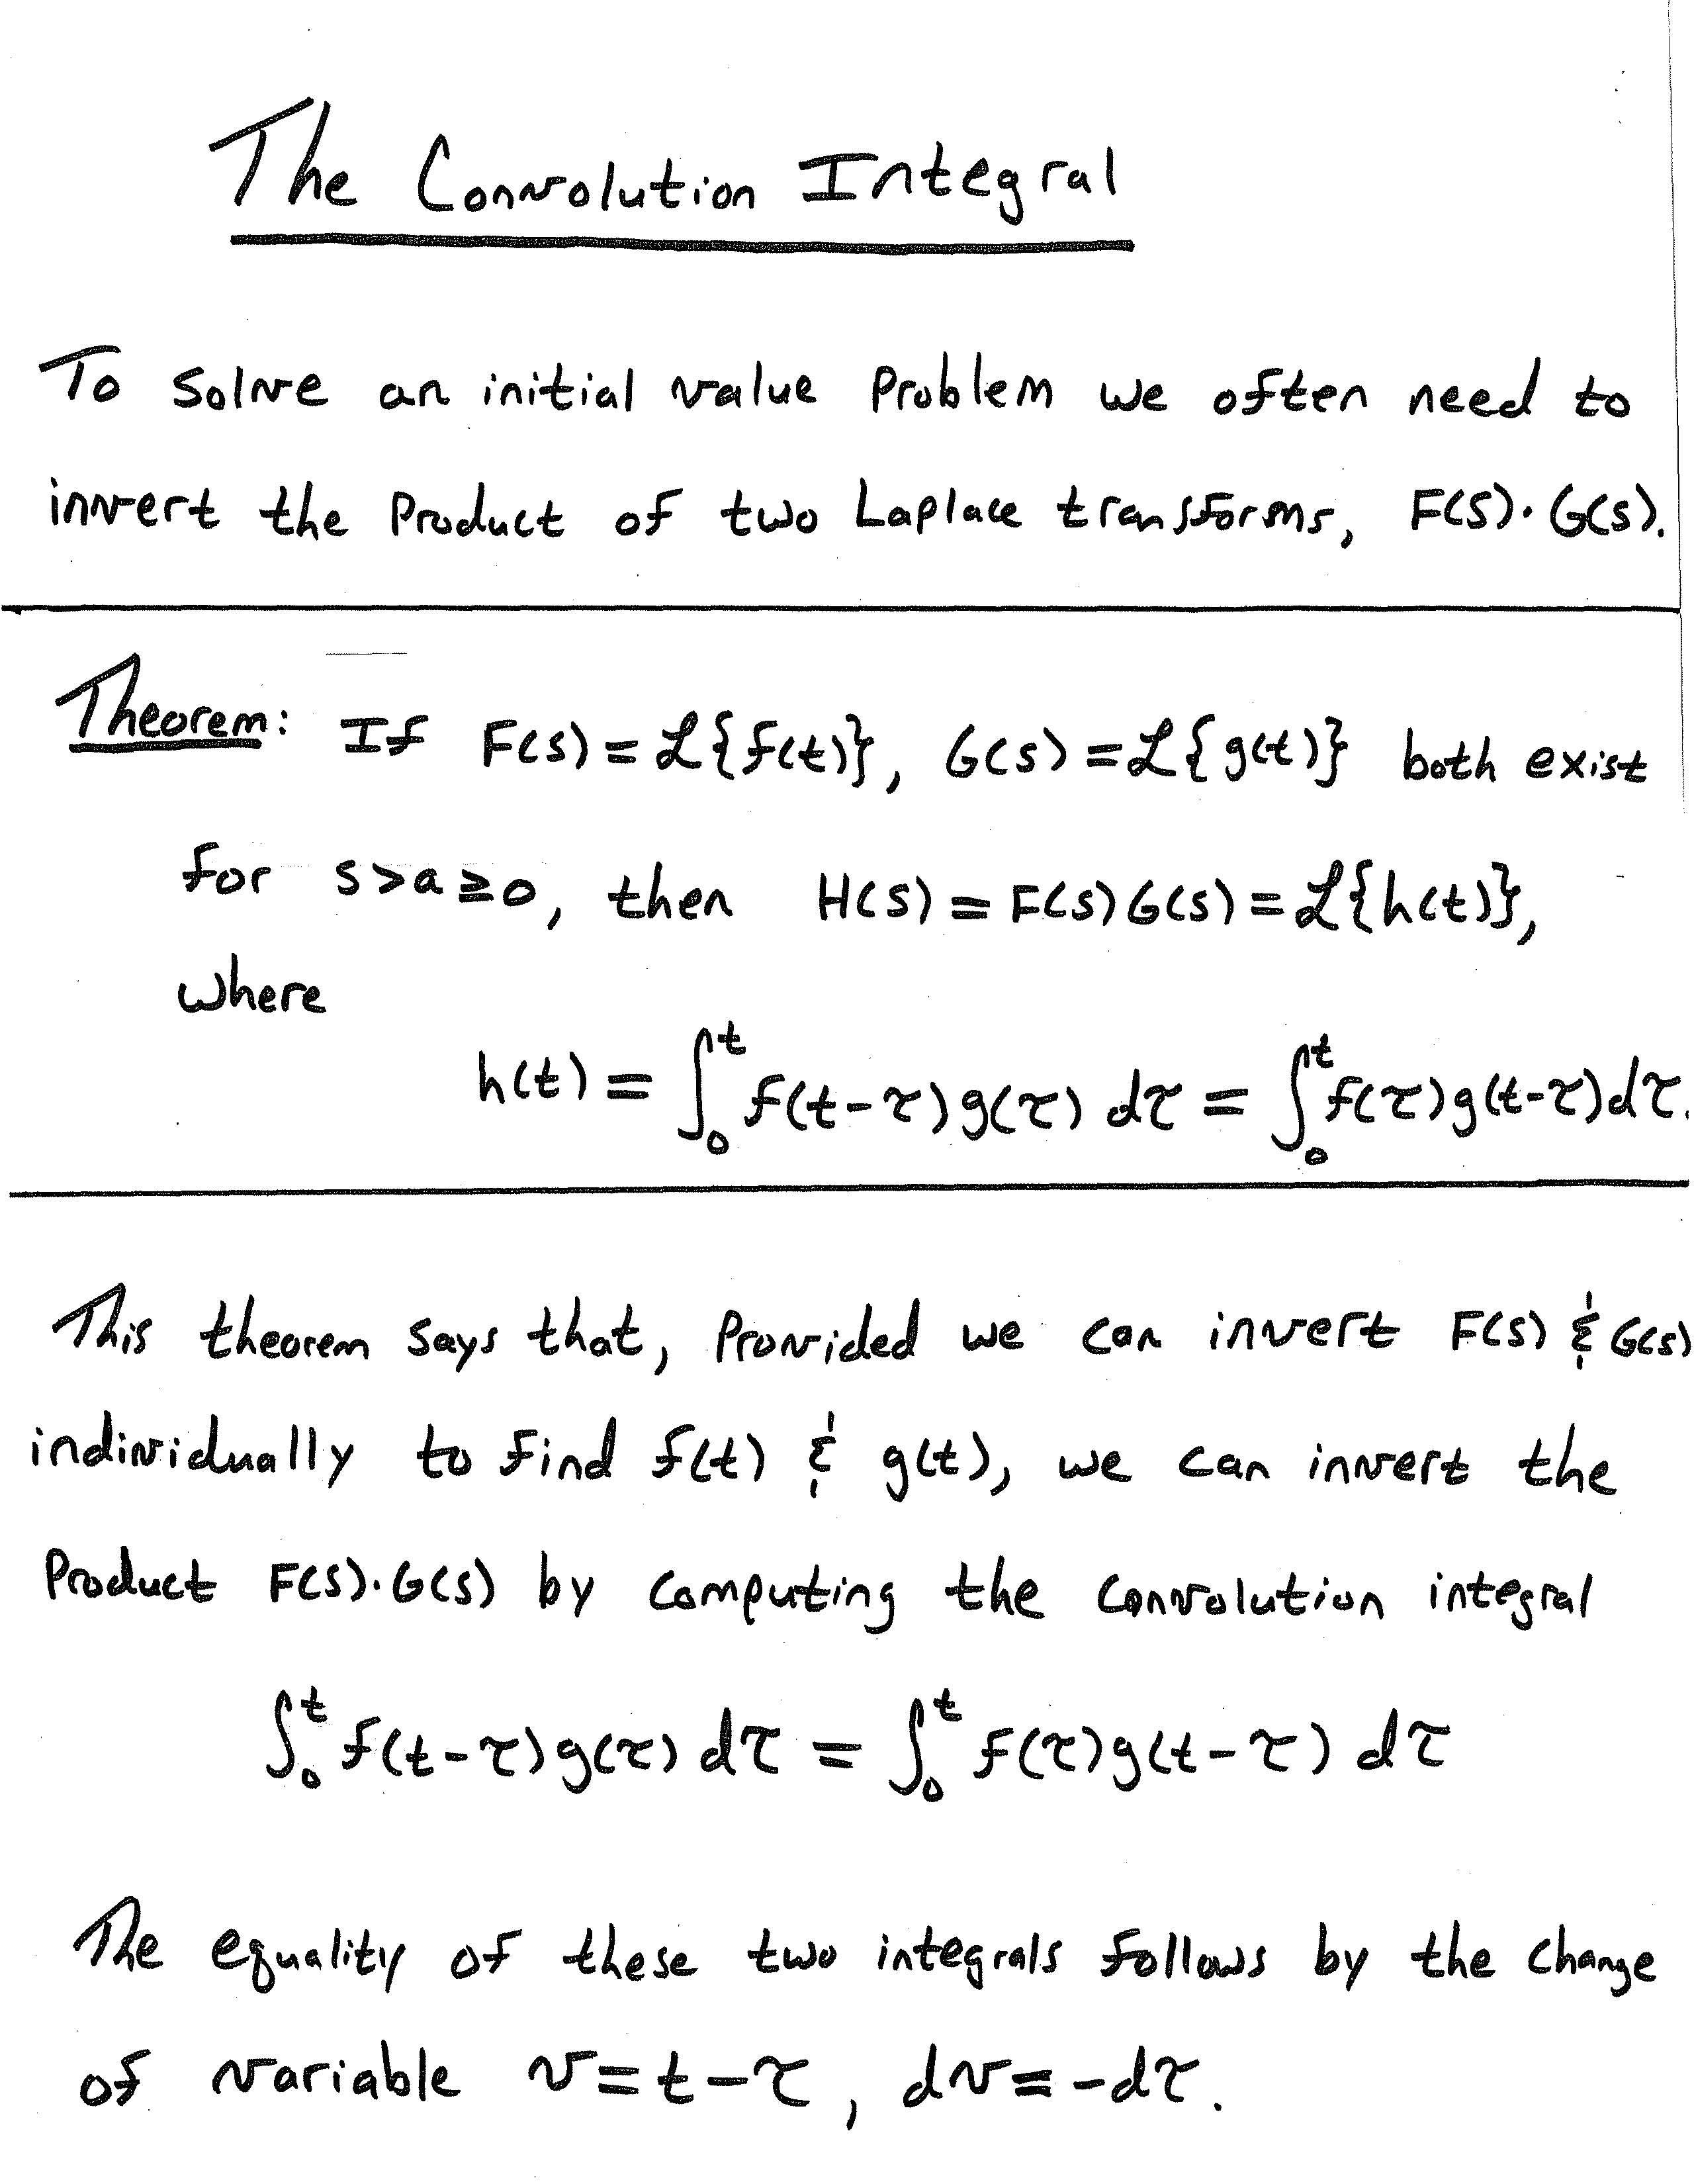 The Convolution Integral
To solve an initial value problem we often need to
invert the product of two Laplace transforms, F(s)·G(s).
Theorem: If F(s) = ℒ{f(t)}, G(s) = ℒ{g(t)} both exist
for s>a≥0, then H(s) = F(s)G(s) = ℒ{h(t)},
where
h(t) = ∫₀ᵗ f(t-τ)g(τ) dτ = ∫₀ᵗ f(τ)g(t-τ)dτ.
This theorem says that, provided we can invert F(s) & G(s)
individually to find f(t) & g(t), we can invert the
product F(s)·G(s) by computing the convolution integral
∫₀ᵗ f(t-τ)g(τ) dτ = ∫₀ᵗ f(τ)g(t-τ) dτ
The equality of these two integrals follows by the change
of variable v=t-τ, dv=-dτ.